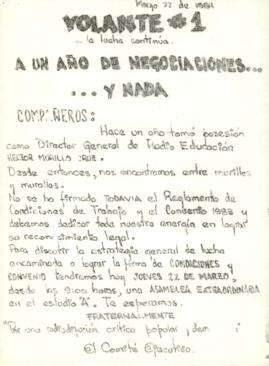 Marzo 22 de 1984
VOLANTE #1
...la lucha continúa.
A UN AÑO DE NEGOCIACIONES...
...Y NADA
COMPAÑEROS:
Hace un año tomó posesión
como Director General de Radio Educación
HECTOR MURILLO CRUZ.
Desde entonces, nos encontramos entre murillos
y murallas.
No se ha firmado TODAVIA el Reglamento de
Condiciones de Trabajo y el Convenio 1983 y
debemos dedicar toda nuestra energía en lograr
su reconocimiento legal.
Para discutir la estrategia general de lucha
encaminada a lograr la firma de CONDICIONES y
CONVENIO tendremos hoy JUEVES 22 DE MARZO,
desde las 9:00 horas, una ASAMBLEA EXTRAORDINARIA
en el estudio "A". Te esperamos.
FRATERNALMENTE
"Por una radiodifusión crítica popular y
El Comité Ejecutivo.